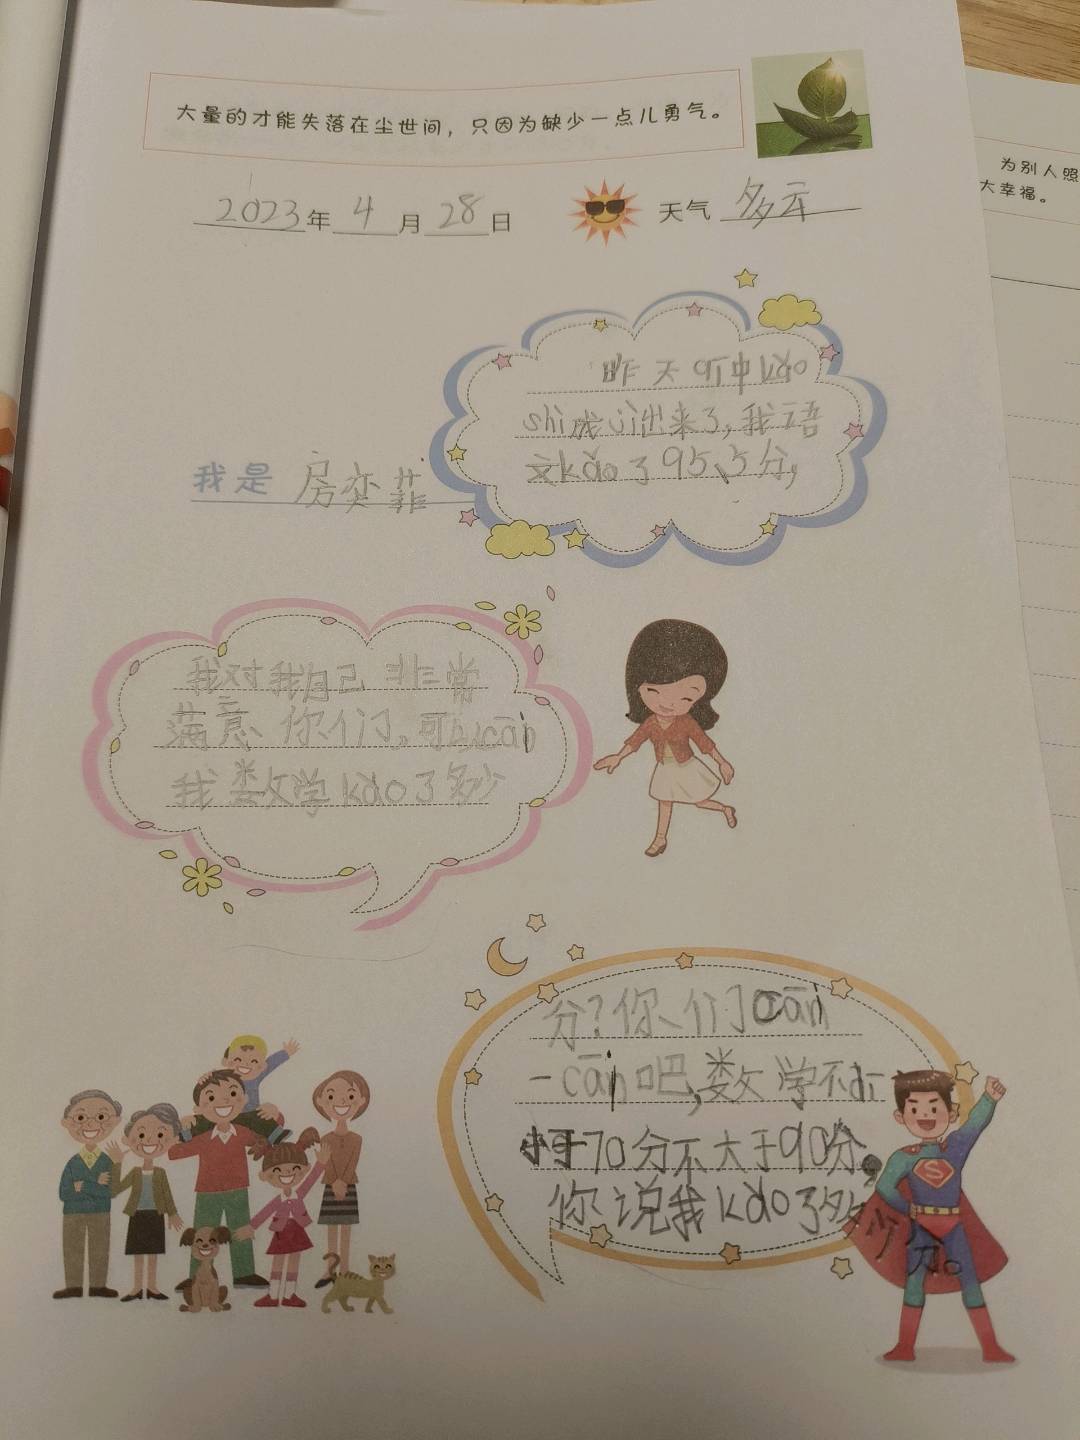 大量的才能失落在尘世间，只因为缺少一点儿勇气。
为别人照
大幸福。
2023年 4月28日 天气 多云
昨天 期中kǎo
shì成jì出来了，我语
文kǎo了95.5分，
我是 房奕菲
我对我自己 非常
满意、你们，可以cāi
我 数学kǎo了多少
分？你们cāi
一cāi吧，数学不
小于70分不大于90分，
你说我kǎo了多少分。
S